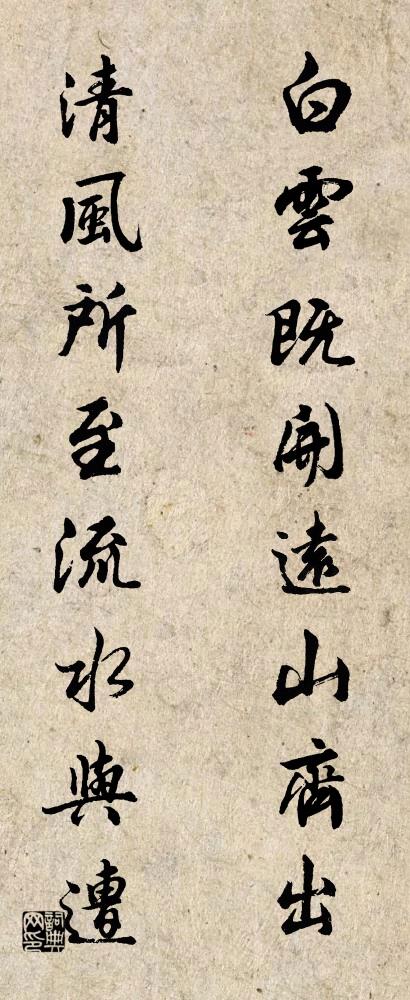 白雲既開遠山齊出
清風所至流水與遭
詞典網印